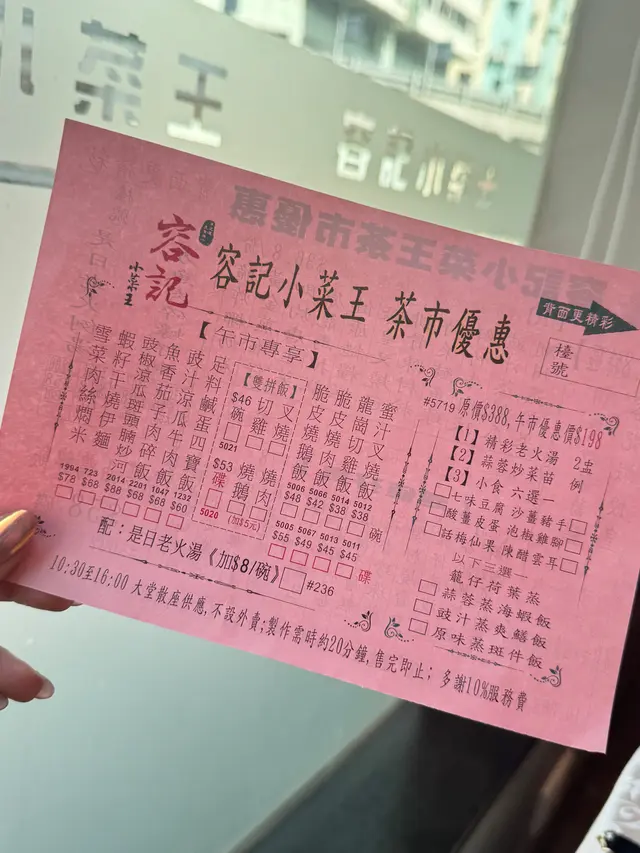 小菜王
容記小菜王
容記
小菜王
容記小菜王 茶市優惠
背面更精彩
檯號
【午市專享】
蜜汁叉燒飯
龍崗切雞飯
脆皮燒肉飯
脆皮燒鵝飯
5006 5066 5014 5012
$48 $42 $38 $38 碗
5005 5067 5013 5011
$55 $49 $45 $45
碟
【雙拼飯】
$46 碗 切雞 叉燒
5021
$53 碟 燒鵝 燒肉
5020 (加$5元)
足料鹹蛋四寶飯
豉汁涼瓜牛肉飯
魚香茄子肉碎飯
豉椒涼瓜斑頭腩炒河
蝦籽干燒伊麵
雪菜肉絲燜米
1994 723 2014 2201 1047 1232
$78 $68 $88 $68 $68 $60
配：是日老火湯《加$8/碗》 #236
#5719 原價$388, 午市優惠價$198
【1】精彩老火湯 2盅
【2】蒜蓉炒菜苗 例
【3】小食 六選一
七味豆腐 沙薑豬手
酸薑皮蛋 泡椒雞腳
話梅仙果 陳醋雲耳
以下三選一
龍仔荷葉蒸
蒜蓉蒸海蝦飯
豉汁蒸爽鱔飯
原味蒸斑件飯
10:30至16:00 大堂散座供應, 不設外賣; 製作需時約20分鐘, 售完即止; 多謝10%服務費